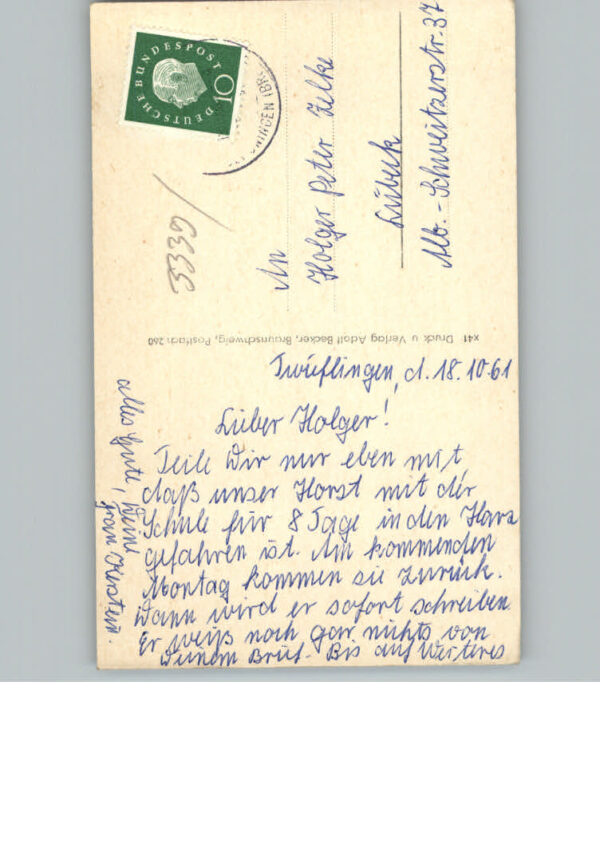 DEUTSCHE BUNDESPOST
10
3339/
An
Holger Peter Zelke
Lübeck
Alb.-Schweitzerstr. 37
x41 Druck u Verlag Adolf Becker, Braunschweig, Postfach 260
Twieflingen, d. 18.10.61
Lieber Holger!
Teile Dir nur eben mit
daß unser Horst mit der
Schule für 8 Tage in den Harz
gefahren ist. Am kommenden
Montag kommen sie zurück.
Dann wird er sofort schreiben
Er weiß noch gar nichts von
Deinem Brief. Bis auf Weiteres
alles Gute, Deine
Frau